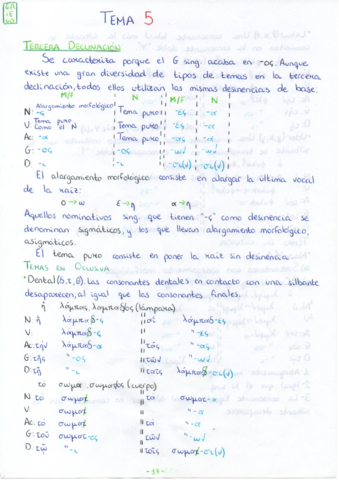 TEMA 5
TERCERA DECLINACIÓN
Se caracteriza porque el G sing. acaba en -ος. Aunque
existe una gran diversidad de tipos de temas en la tercera
declinación, todos ellos utilizan las mismas desinencias de base:
M/F N M/F N
N: Alargamiento morfológico/-ς Tema puro -ες -α
V: Tema puro/Como el N Tema puro -ες -α
Ac: -α Tema puro -ας -α
G: -ος -ων -ων
D: -ι -σι(ν) -σι(ν)
El alargamiento morfológico consiste en alargar la última vocal
de la raíz:
ο→ω ε→η α→η
Aquellos nominativos sing. que tienen "-ς" como desinencia se
denominan sigmáticos, y los que llevan alargamiento morfológico,
asigmáticos.
El tema puro consiste en poner la raíz sin desinencia.
TEMAS EN OCLUSIVA
*Dental (δ, τ, θ). Las consonantes dentales en contacto con una silbante
desaparecen, al igual que las consonantes finales.
ἡ λάμπας, λαμπαδος (lámpara)
N ἡ λαμπαδ-ς αἱ λαμπαδ-ες
V: λαμπαδ-ς "-ες
Ac. τὴν λαμπαδ-α τὰς "-ας
G: τῆς "-ος τῶν "-ων
D: τῇ "-ι ταῖς λαμπαδ-σι(ν)
τὸ σωμα, σωματος (cuerpo)
N τὸ σωματ τὰ σωματ-α
V: σωματ "-α
Ac τὸ σωματ τὰ "-α
G: τοῦ σωματ-ος τῶν "-ων
D: τῷ "-ι τοῖς σωματ-σι(ν)